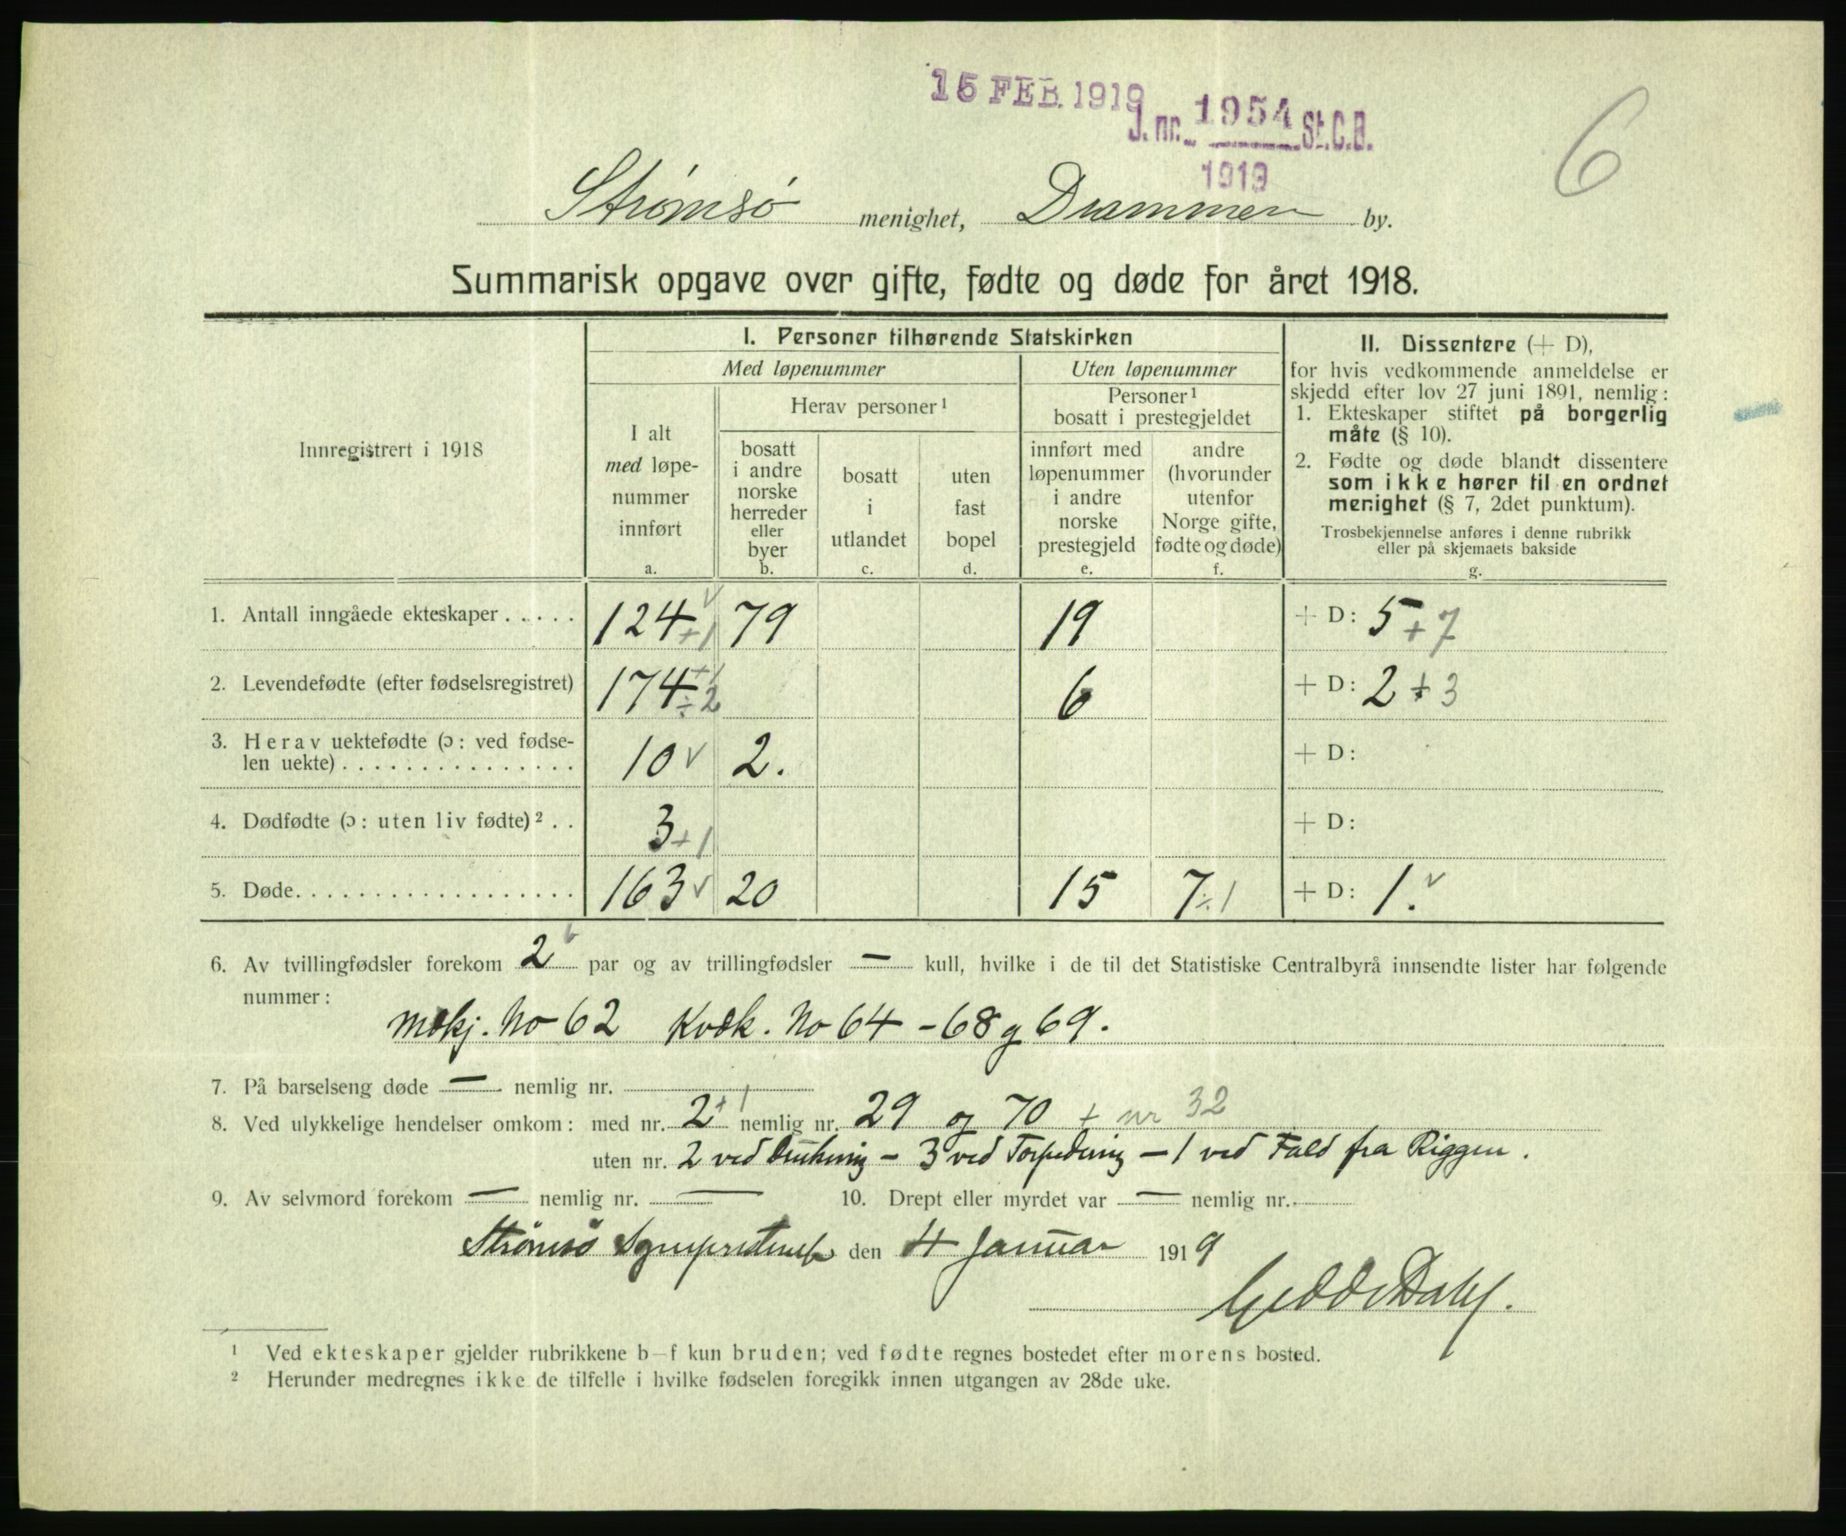 15 FEB. 1919
J. nr. 1954 St.C.B.
1919
6
Strømsø menighet, Drammen by.
Summarisk opgave over gifte, fødte og døde for året 1918.
Innregistrert i 1918
I. Personer tilhørende Statskirken
Med løpenummer
Uten løpenummer
I alt
med løpe-
nummer
innført
a.
Herav personer¹
bosatt
i andre
norske
herreder
eller
byer
b.
bosatt
i
utlandet
c.
uten
fast
bopel
d.
Personer¹
bosatt i prestegjeldet
innført med
løpenummer
i andre
norske
prestegjeld
e.
andre
(hvorunder
utenfor
Norge gifte,
fødte og døde)
f.
II. Dissentere (+ D),
for hvis vedkommende anmeldelse er
skjedd efter lov 27 juni 1891, nemlig:
1. Ekteskaper stiftet på borgerlig
måte (§ 10).
2. Fødte og døde blandt dissentere
som ikke hører til en ordnet
menighet (§ 7, 2det punktum).
Trosbekjennelse anføres i denne rubrikk
eller på skjemaets bakside
g.
1. Antall inngåede ekteskaper . . . . . 124 + 1 √ 79 19 + D: 5 + 7
2. Levendefødte (efter fødselsregistret) 174 + 1 ÷ 2 6 + D: 2 + 3
3. Herav uektefødte (ɔ: ved fødse-
len uekte) . . . . . . . . . . . . . . . 10 √ 2. + D:
4. Dødfødte (ɔ: uten liv fødte)² . . 3 + 1 + D:
5. Døde. . . . . . . . . . . . . . . . . . 163 √ 20 15 7 ÷ 1 + D: 1. √
6. Av tvillingfødsler forekom 2 √ par og av trillingfødsler — kull, hvilke i de til det Statistiske Centralbyrå innsendte lister har følgende
nummer:
Mskj. No 62 Kvdk. No 64 – 68 g 69.
7. På barselseng døde — nemlig nr.
8. Ved ulykkelige hendelser omkom: med nr. 2 + 1 nemlig nr. 29 og 70 + nr 32
uten nr. 2 ved Drukning – 3 ved Torpedering – 1 ved Fald fra Riggen.
9. Av selvmord forekom — nemlig nr. — 10. Drept eller myrdet var — nemlig nr.
Strømsø den 4 Januar 1919
Gedde Dahl.
¹ Ved ekteskaper gjelder rubrikkene b–f kun bruden; ved fødte regnes bostedet efter morens bosted.
² Herunder medregnes ikke de tilfelle i hvilke fødselen foregikk innen utgangen av 28de uke.